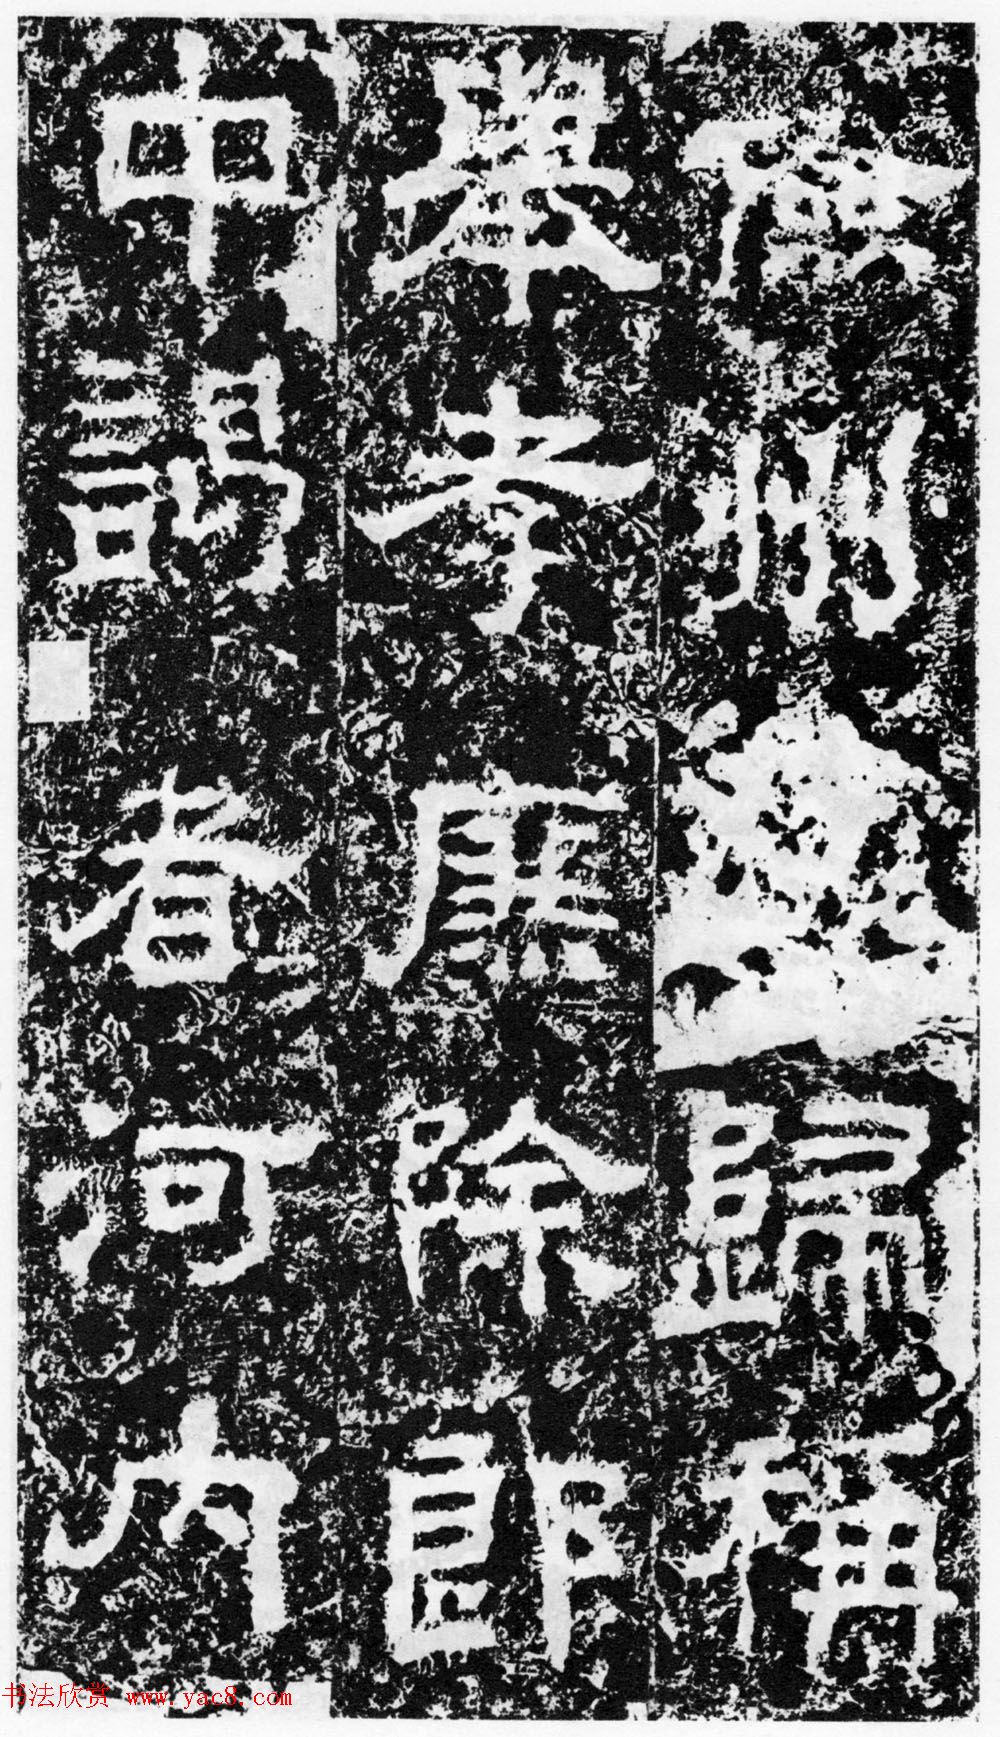 州歸稱
舉孝廉除郎
中謁者河內
书法欣赏 www.yac8.com